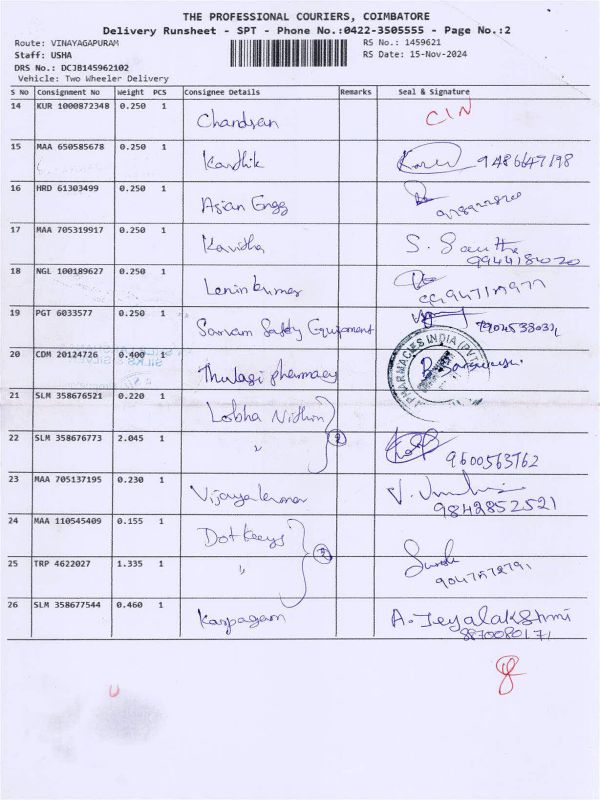 THE PROFESSIONAL COURIERS, COIMBATORE
Delivery Runsheet - SPT - Phone No.:0422-3505555 - Page No.:2
Route: VINAYAGAPURAM
Staff: USHA
DRS No.: DCJB145962102
Vehicle: Two Wheeler Delivery
RS No.: 1459621
RS Date: 15-Nov-2024
S No Consignment No Weight PCS Consignee Details Remarks Seal & Signature
14 KUR 1000872348 0.250 1 Chandran CIN
15 MAA 650585678 0.250 1 Karthik
16 HRD 61303499 0.250 1 Asian Engg
17 MAA 705319917 0.250 1 Kavitha S.
9944184020
18 NGL 100189627 0.250 1 Lenin kumar
19 PGT 6033577 0.250 1 Sarvam Safety Equipment
20 CDM 20124726 0.400 1 Thulasi pharmacy
PHARMACIES INDIA (PVT
21 SLM 358676521 0.220 1 Lobha Nithin
22 SLM 358676773 2.045 1 " 2
9600563762
23 MAA 705137195 0.230 1 Vijaya
9842852521
24 MAA 110545409 0.155 1 Dot keeys
25 TRP 4622027 1.335 1 " 2
26 SLM 358677544 0.460 1 Karpagam A. Jeyalakshmi
8870080171